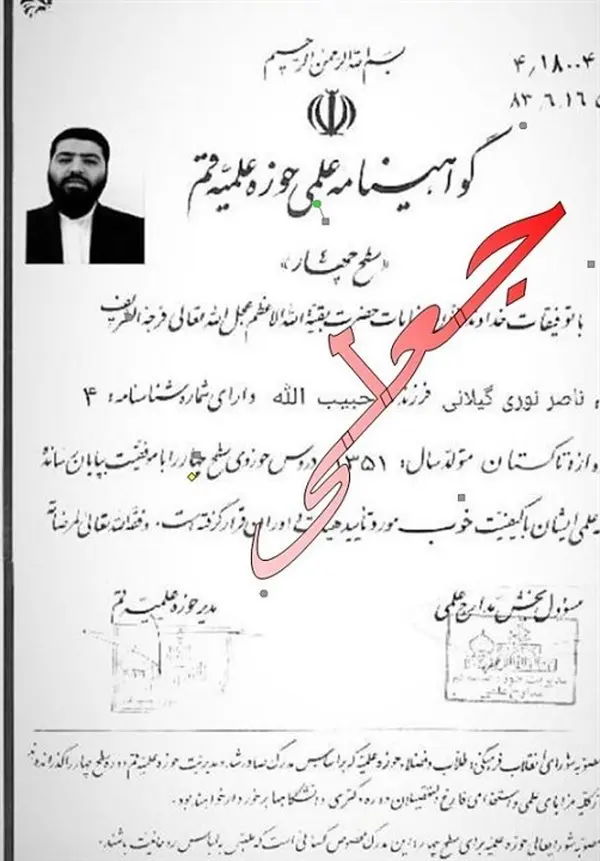 بسم الله الرحمن الرحیم
۴٫۱۸۰۰۴
۸۳٫۶٫۱۶
گواهینامه علمی حوزه علمیه قم
«سطح چهار»
۴
با توفیقات خداوند حضرت بقیة الله الاعظم عجل الله تعالی فرجه الشریف
ناصر نوری گیلانی فرزند حبیب الله دارای شماره شناسنامه: ۴
تاکستان متولد سال: ۱۳۵۱ دروس حوزوی سطح چهار را با موفقیت بپایان رسانده
علمی ایشان با کیفیت خوب مورد تأیید قرار گرفته است. وفقه الله تعالی لمرضاته
جعلی
مسؤول بخش مدارج علمی
مدیر حوزه علمیه قم
مدیریت حوزه علمیه قم
مدارج علمی
مصوبه شورای انقلاب فرهنگی: طلاب و فضلاء حوزه علمیه که بر اساس مدرک صادر شده مدیریت حوزه علمیه قم دوره سطح چهار را گذرانده
از کلیه مزایای علمی و استخدامی فارغ التحصیلان دوره دکتری دانشگاهها برخوردار خواهند بود.
مصوبه شورای عالی حوزه علمیه برای سطح چهار: این مدرک مخصوص کسانی است که ملبس به لباس روحانیت باشند.